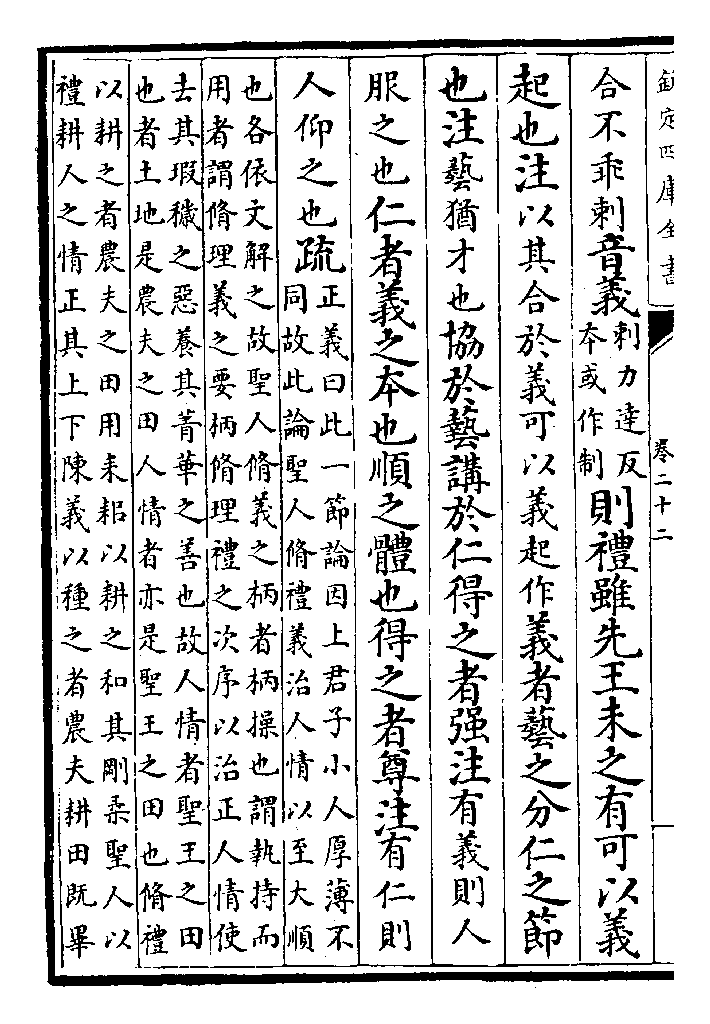 欽定四庫全書
卷二十二
合不乖剌音義
剌力達反
本或作制
則禮雖先王未之有可以義
起也注以其合於義可以義起作義者藝之分仁之節
也注藝猶才也協於藝講於仁得之者强注有義則人
服之也仁者義之本也順之體也得之者尊注有仁則
人仰之也疏
正義曰此一節論因上君子小人厚薄不
同故此論聖人脩禮義治人情以至大順
也各依文解之故聖人脩義之柄者柄操也謂執持而
用者謂脩理義之要柄脩理禮之次序以治正人情使
去其瑕穢之惡養其菁華之善也故人情者聖王之田
也者土地是農夫之田人情者亦是聖王之田也脩禮
以耕之者農夫之田用耒耜以耕之和其剛柔聖人以
禮耕人之情正其上下陳義以種之者農夫耕田既畢